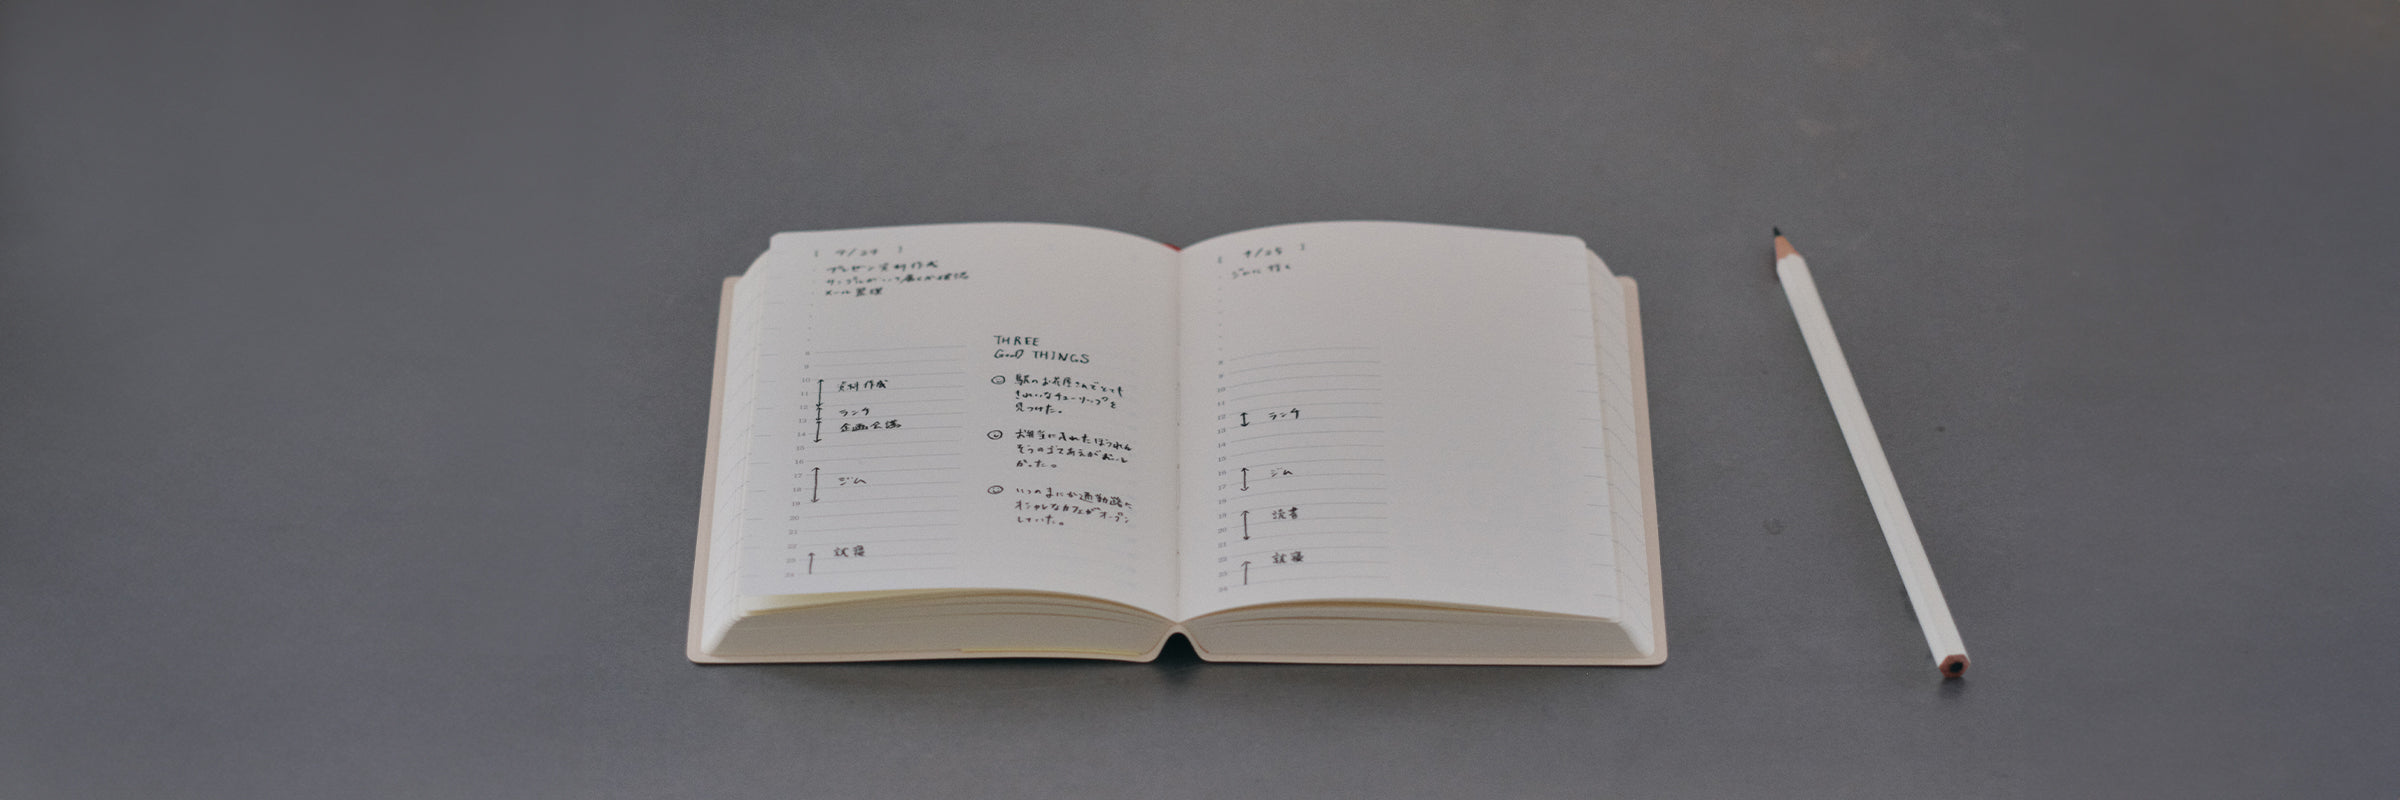 [ 9/24 ]
プレゼン資料作成
サンプルがいつ届くか確認
メール整理
8
9
10
資料作成
11
12
ランチ
13
企画会議
14
15
16
17
ジム
18
19
20
21
22
就寝
23
24
THREE
GOOD THINGS
駅のお花屋さんでとても
きれいなチューリップを
見つけた。
お弁当に入れたほうれん
そうのゴマあえがおいし
かった。
いつのまにか通勤路に
オシャレなカフェがオープン
していた。
[ 9/25 ]
ジムに行く
8
9
10
11
12
ランチ
13
14
15
16
ジム
17
18
19
読書
20
21
22
就寝
23
24